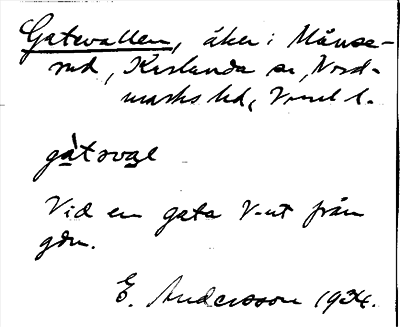 Gatevallen, åker i Månse-
rud, Karlanda sn, Nord-
marks hd, Vrml l.
gàtəvaḷ
Vid en gata V-ut från
gdn.
E. Andersson 1934.